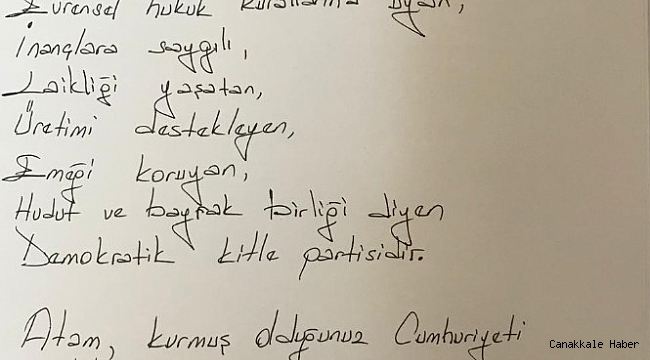 Evrensel hukuk kurallarına uyan,
İnançlara saygılı,
Laikliği yaşatan,
Üretimi destekleyen,
Emeği koruyan,
Hudut ve bayrak birliği diyen
Demokratik kitle partisidir.
Atam, kurmuş olduğunuz Cumhuriyeti
Canakkale Haber